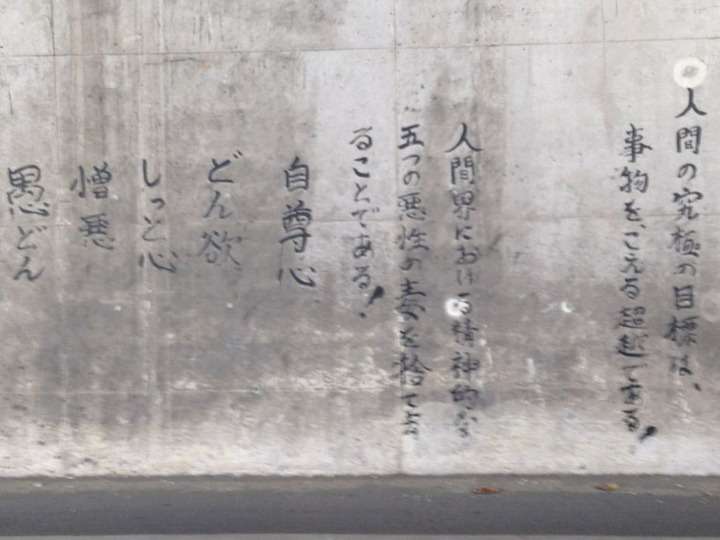 人間の究極の目標は、
事物を、こえる超越である!
人間界における精神的な
五つの悪性の毒を捨て去
ることである!
自尊心
どん欲
しっと心
憎悪
愚どん